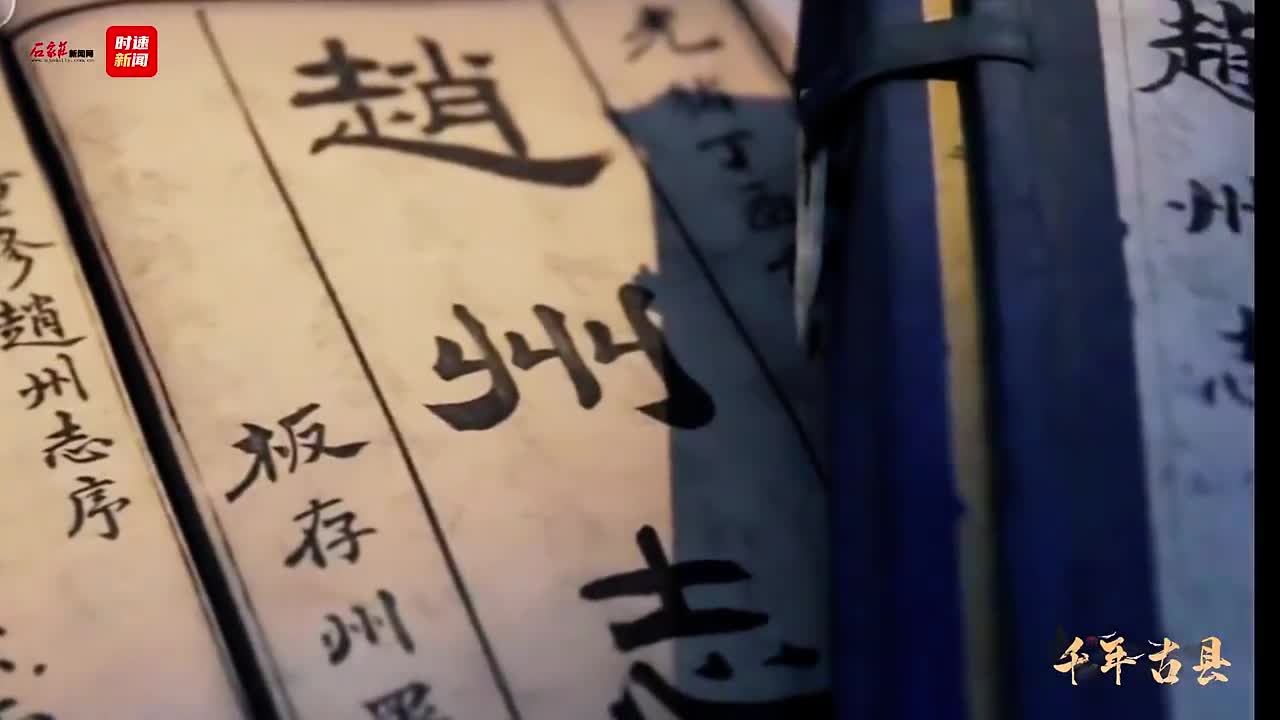 石家庄新闻网
www.sjzdaily.com.cn
时速
新闻
光緒丁酉
趙州志
板存州署
重修趙州志序
趙州志
千年古县